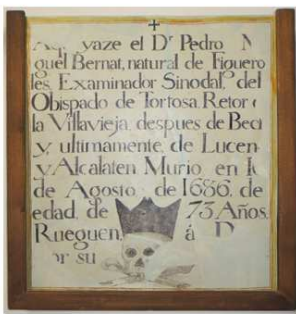 yaze el Dr Pedro
guel Bernat, natural de Figuero
les, Examinador Sinodal, del
Obispado de Tortosa, Retor
la Villavieja, despues de
y, ultimamente, de Lucen
y Alcalaten Murio en
de Agosto de 1686, de
edad, de 73 Años
Rueguen, á D
or su